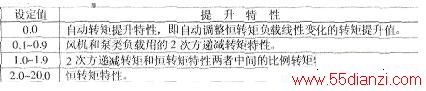 设定值 提升特性
0.0 自动转矩提升特性，即自动调整恒转矩负载线性变化的转矩提升值。
0.1-0.9 风机和泵类负载用的2次方递减转矩特性。
1.0~1.9 2次方递减转矩和恒转矩特性两者中间的比例转矩
2.0~20.0 恒转矩特性。
www.55dianzi.com